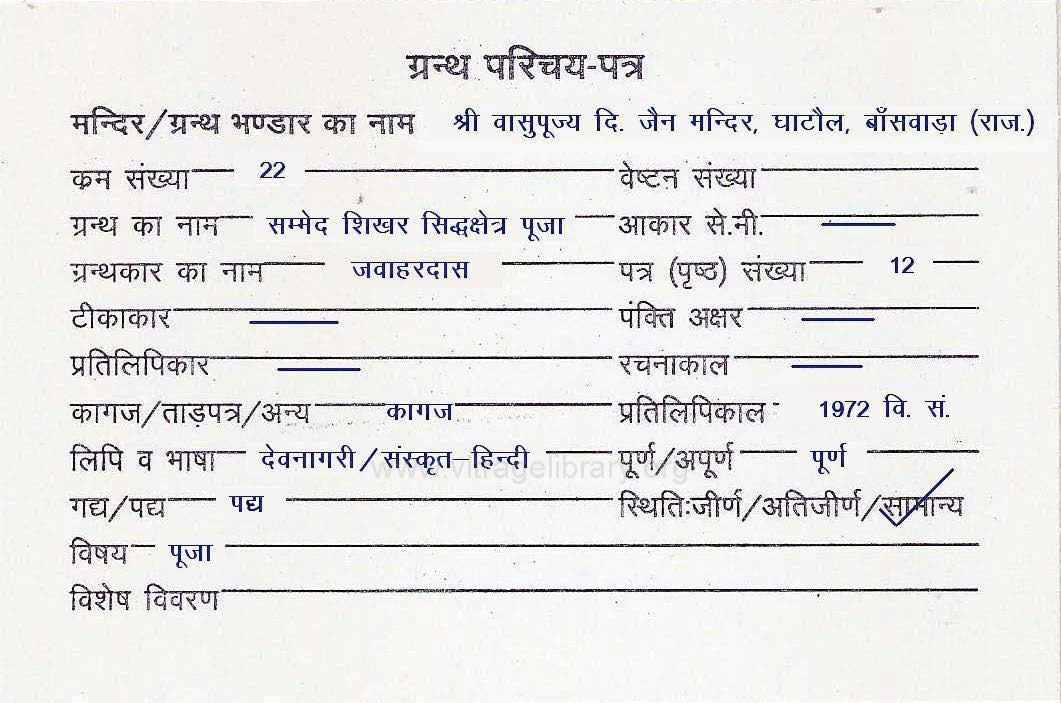 ग्रन्थ परिचय-पत्र
मन्दिर/ग्रन्थ भण्डार का नाम श्री वासुपूज्य दि. जैन मन्दिर, घाटौल, बाँसवाड़ा (राज.)
कम संख्या 22 वेष्टन संख्या
ग्रन्थ का नाम सम्मेद शिखर सिद्धक्षेत्र पूजा आकार से.मी.
ग्रन्थकार का नाम जवाहरदास पत्र (पृष्ठ) संख्या 12
टीकाकार पंक्ति अक्षर
प्रतिलिपिकार रचनाकाल
कागज/ताड़पत्र/अन्य कागज प्रतिलिपिकाल 1972 वि. सं.
लिपि व भाषा देवनागरी/संस्कृत-हिन्दी पूर्ण/अपूर्ण पूर्ण
www.vitragelibrary.org
गद्य/पद्य पद्य स्थितिःजीर्ण/अतिजीर्ण/सामान्य
विषय पूजा
विशेष विवरण